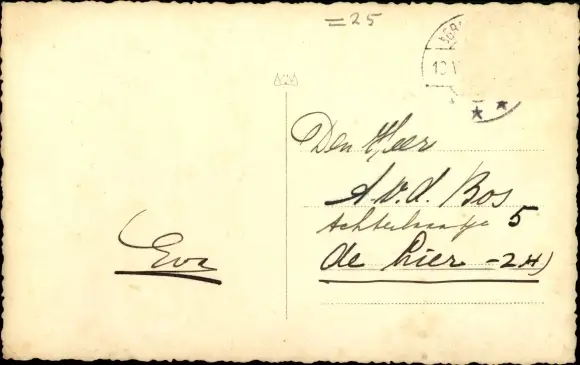 =25
10 V
Den Heer
A. v. d. Bos
Achterlaantje 5
de Lier -ZH)
Eva